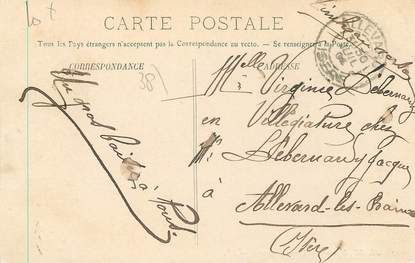 CARTE POSTALE
Tous les Pays étrangers n'acceptent pas la Correspondance au recto. — Se renseigner à la Poste.
CORRESPONDANCE
ADRESSE
38
Melle
Virginie Débernardy
en Villégiature chez
Mr Débernardy Jacques
à
Allevard-les-Bains
(Isère)
Un gros baiser à